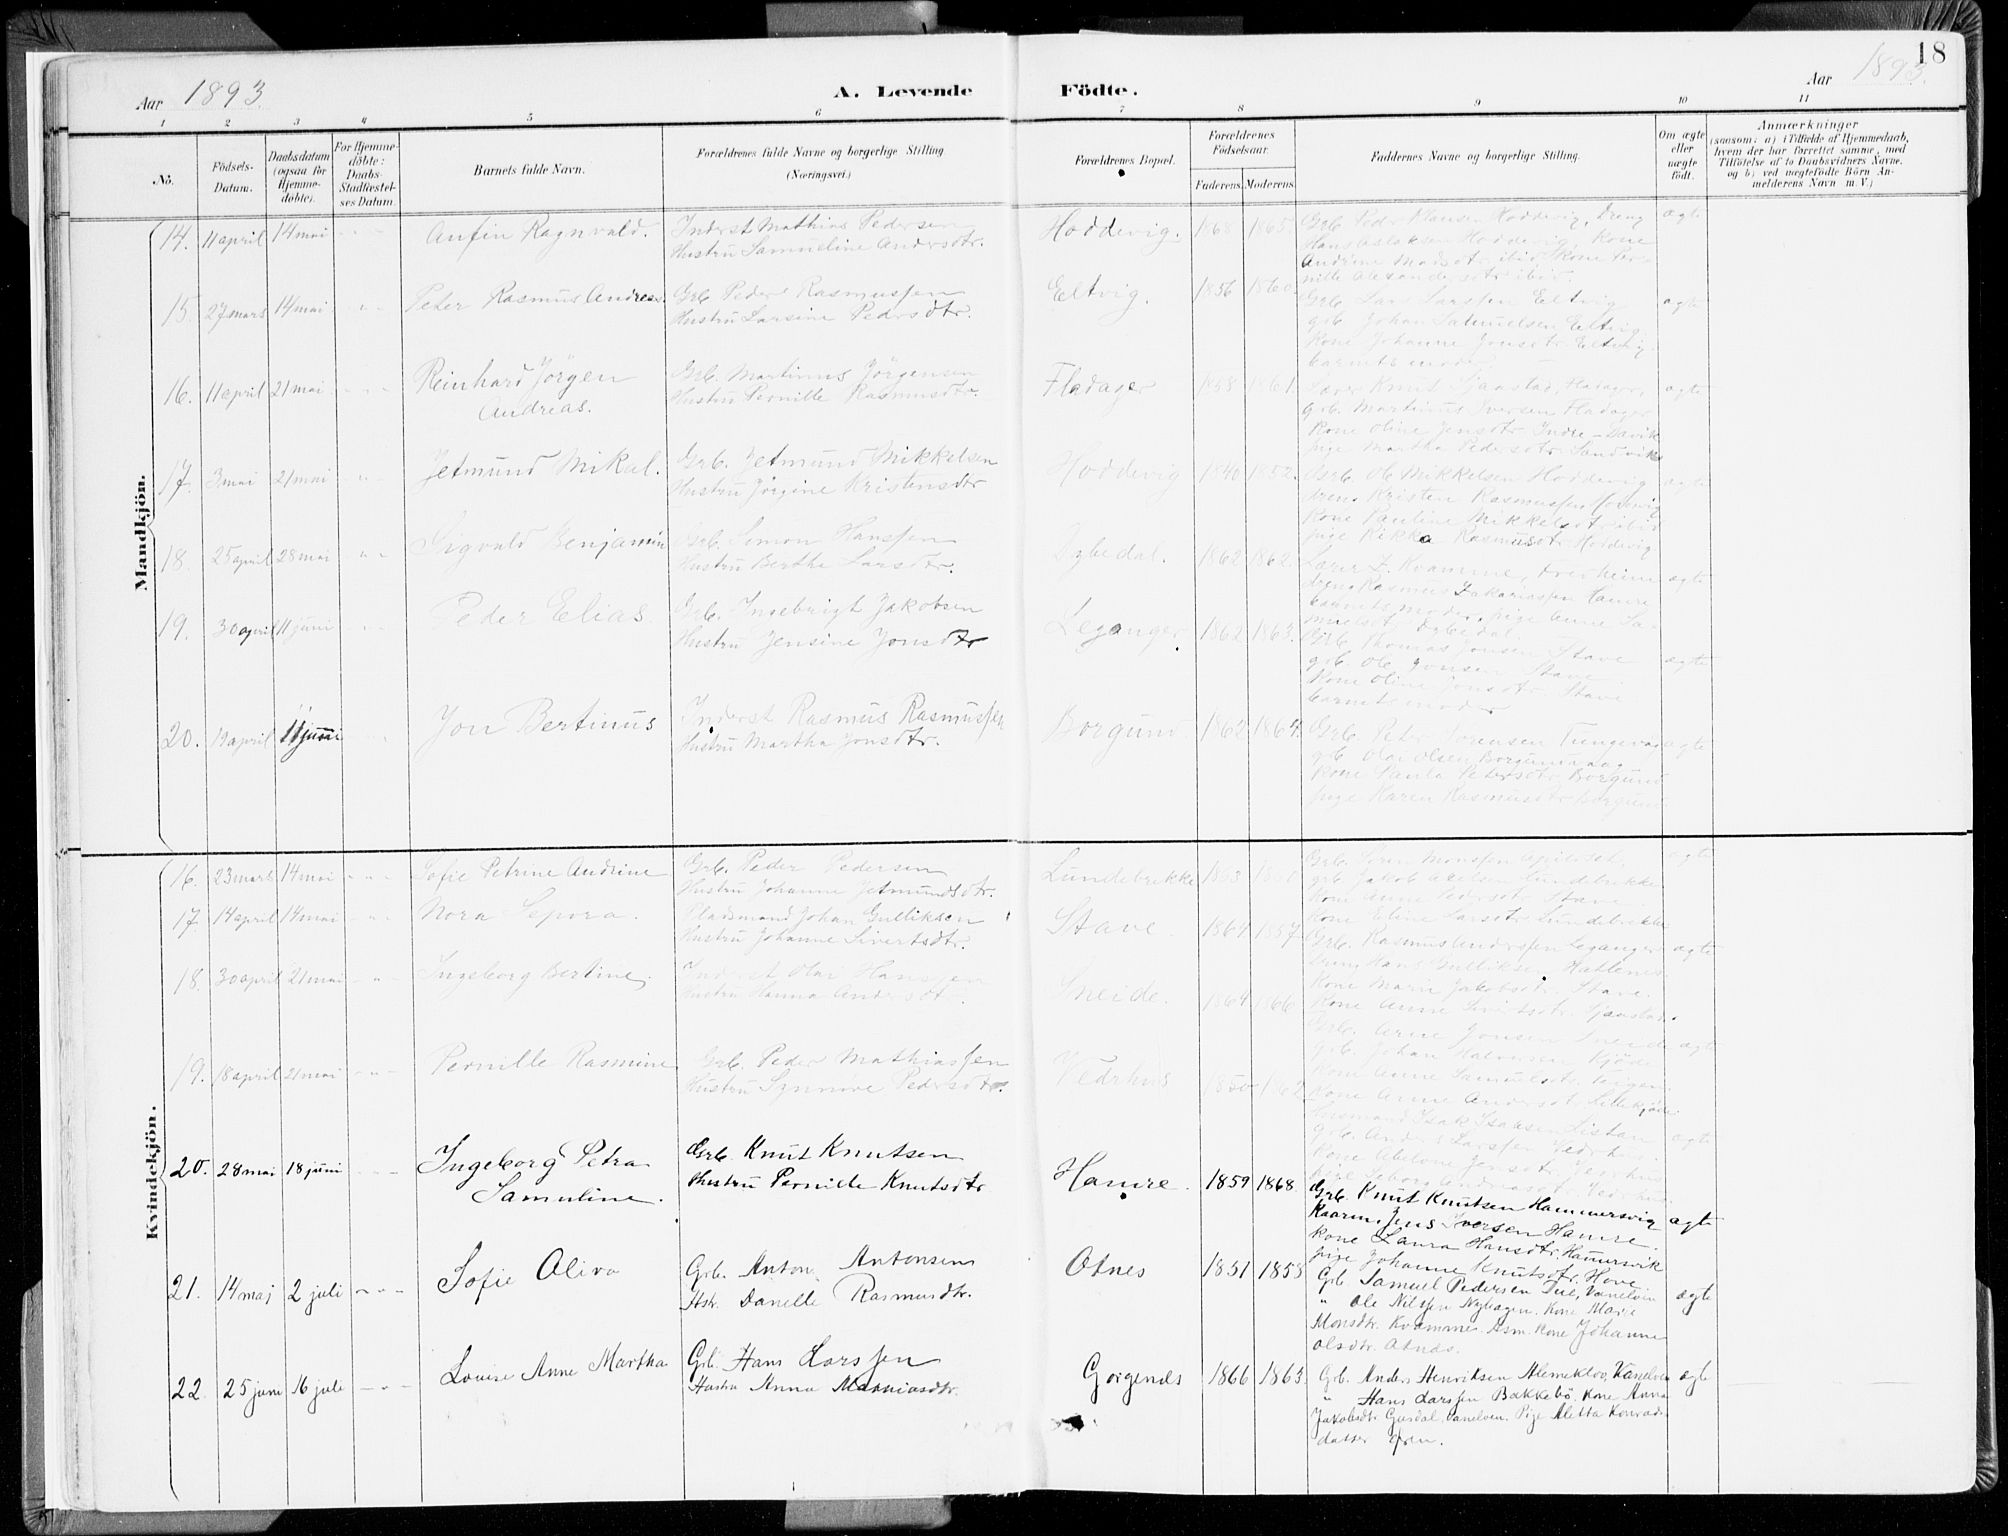 18
Aar 1893
A. Levende Födte.
Aar 1893.
1 2 3 4 5 6 7 8 9 10 11
No.
Födsels-Datum.
Daabsdatum (ogsaa for Hjemme-döbte).
For Hjemme-döbte: Daabs-Stadfæstel-ses Datum.
Barnets fulde Navn.
Forældrenes fulde Navne og borgerlige Stilling (Næringsvei.)
Forældrenes Bopæl.
Forældrenes Födselsaar.
Faderens. Moderens.
Faddernes Navne og borgerlige Stilling.
Om ægte eller uægte födt.
Anmærkninger
(saasom: a) i Tilfælde af Hjemmedaab, hvem der har forrettet samme, med Tilföielse af to Daabsvidners Navne, og b) ved uægtefödte Börn An-melderens Navn m. V.)
Mandkjön.
14. 11 april 14 mai Anfin Ragnvald. Inderst Mathias Pedersen
Hustru Samueline Andersdtr. Hoddevig. 1868 1865
Grb. Peder Hansen Hoddevig, Dreng
Hans Aslaksen Hoddevig, Kone
Andrine Madsdtr. ibid, Kone Per-
nille Alexandersdtr. ibid. ægte
15. 27 mars 14 mai Peter Rasmus Andreas Grb. Peder Rasmussen
Hustru Larsine Pedersdtr. Eltvig. 1856 1860
Grb. Lars Larssen Eltvig
grb. Johan Samuelsen Eltvig
Kone Johanne Jonsdtr. Eltvig
barnets moder. ægte
16. 11 april 21 mai Reinhard Jörgen
Andreas. Grb. Martinus Jörgensen
Hustru Pernille Rasmusdtr. Fladager 1858 1861.
Lærer Knut Tjaastad, Fladager,
grb. Martinus Iversen Fladager
Kone Oline Jensdtr. Indre-Davik
pige Martha Pedersdtr. Sandvik ægte
17. 3 mai 21 mai Jetmund Mikal. Grb. Jetmund Mikkelsen
Hustru Jörgine Kristensdtr Hoddevig 1840 1852.
Grb. Ole Mikkelsen Hoddevig
dreng Kristen Rasmussen Hoddevig
Kone Pauline Mikkelsdtr. ibid
pige Rikka Rasmusdtr. Hoddevig ægte
18. 25 april 28 mai Sigvald Benjamin Grb. Simon Hanssen
Hustru Berthe Larsdtr. Dybedal. 1862 1862.
Lærer Z. Kvamme,
dreng Rasmus Zakariassen Hamre
barnets moder, pige Anne Sa-
muelsdtr. Dybedal ægte
19. 30 april 11 juni Peder Elias. Grb. Ingebrigt Jakobsen
Hustru Jensine Jonsdtr Leganger 1862 1863.
Grb. Thomas Jonsen Stave
grb. Ole Jonsen Stave
Kone Oline Jonsdtr. Stave
barnets moder ægte
20. 19 april 11 juni Jon Bertinus Inderst Rasmus Rasmussen
Hustru Martha Jonsdtr. Borgund. 1862 1864.
Grb. Peter Sörensen
grb. Olai Olsen
Kone Paula Petersdtr. Borgund
pige Karen Rasmusdtr. Borgund ægte
Kvindekjön.
16. 23 mars 14 mai Sofie Petrine Andrine Grb. Peder Pedersen
Hustru Johanne Jetmundsdtr. Lundebrekke 1863
grb. Jakob Lundebrekke
Kone Anne Pedersdtr. Stave
Kone Eline Larsdtr. Lundebrekke ægte
17. 14 april 14 mai Nora Sepora. Pladsmand Johan Gulliksen
Hustru Johanne Sivertsdtr. Stave. 1864 1857
Grb. Rasmus Anderssen Leganger
Dreng Hans Gulliksen
Kone Marie Jakobsdtr. Stave.
Kone Anne Sivertsdtr. ægte
18. 30 april 21 mai Ingeborg Bertine. Inderst Olai Hansen
Hustru Hanna Andersdtr. Sneide. 1864 1866
Grb. Arne Jonsen Sneide
grb. Johan
Kone Anne Samuelsdtr.
Kone Anne Andersdtr. ægte
19. 18 april 21 mai Pernille Rasmine Grb. Peder Mathiassen
Hustru Synnöve Pedersdtr. Vedrhus 1850 1862
Isak Isaksen Listau
grb. Anders Larssen Vedrhus.
Kone Abelone Jensdtr. Vedrhus ægte
20. 28 mai 18 juni Ingeborg Petra
Samuline. Grb. Knut Knutsen
Hustru Pernille Knutsdtr Hamre. 1859 1868.
Grb. Knut Knutsen Hammersvig
Kaarm. Jens Iversen Hamre.
Kone Laura Hansdtr. Hamersvik
pige Johanne Knutsdtr. Hove ægte
21. 14 maj 2 juli Sofie Oliva Grb. Anton Antonsen
Hstr. Danelle Rasmusdtr. Otnes 1851 1853
Grb Samuel Pedersen Vanelven
" Ole Nilssen Nyhagen. Kone Marie
Monsdtr. Kvamme Kone Johanne
Olsdtr. Otnes. ægte
22. 25 juni 16 juli Lovise Anne Martha Grb. Hans Larssen
Hustru Anna Mathiasdtr. Gorgenæs 1866 1863
Grb. Anders Henriksen Almeklov, Vanelven
" Hans Larssen Bakkebö. Kone Anna
Jakobsdtr. Gusdal. Vanelven. Pige Aletta Konrads-
datter ægte